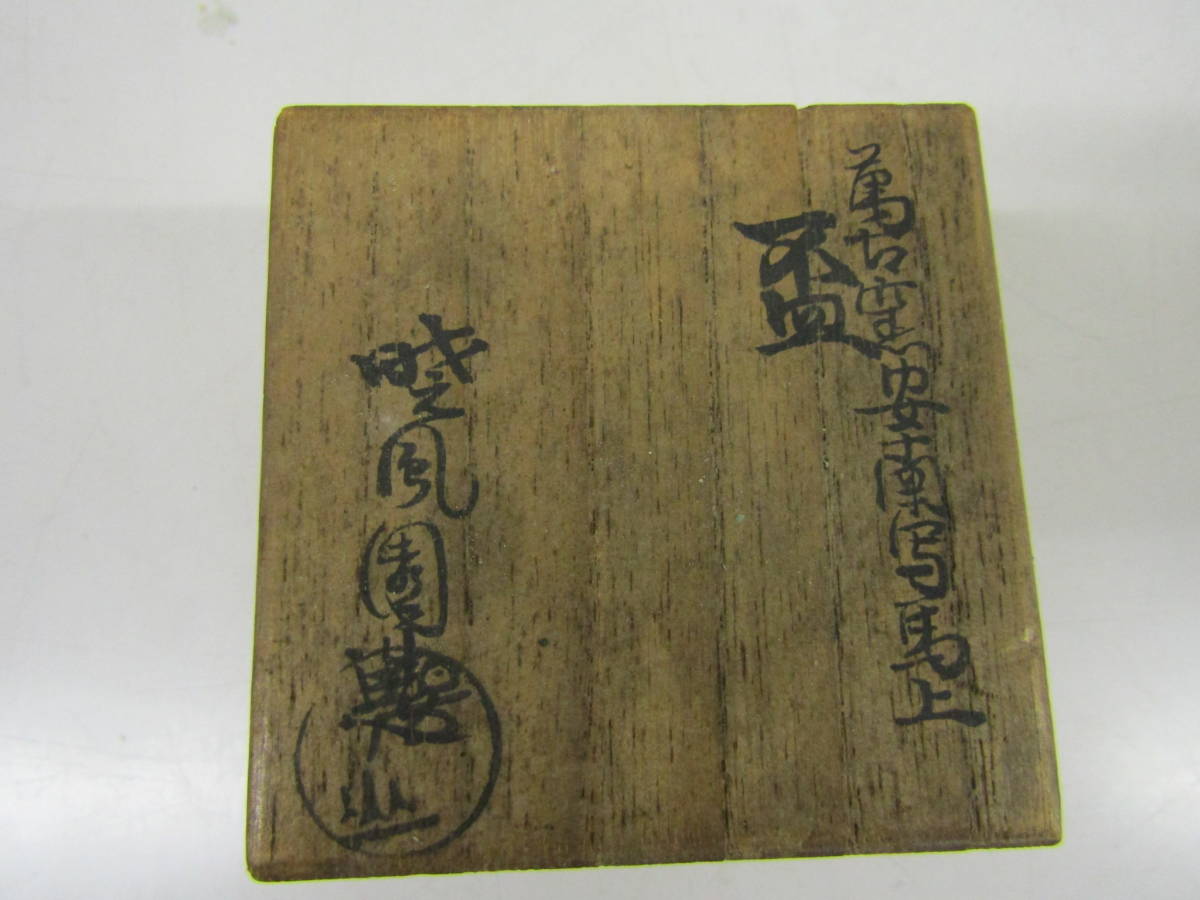 萬古窯安南写馬上
盃
暁風園